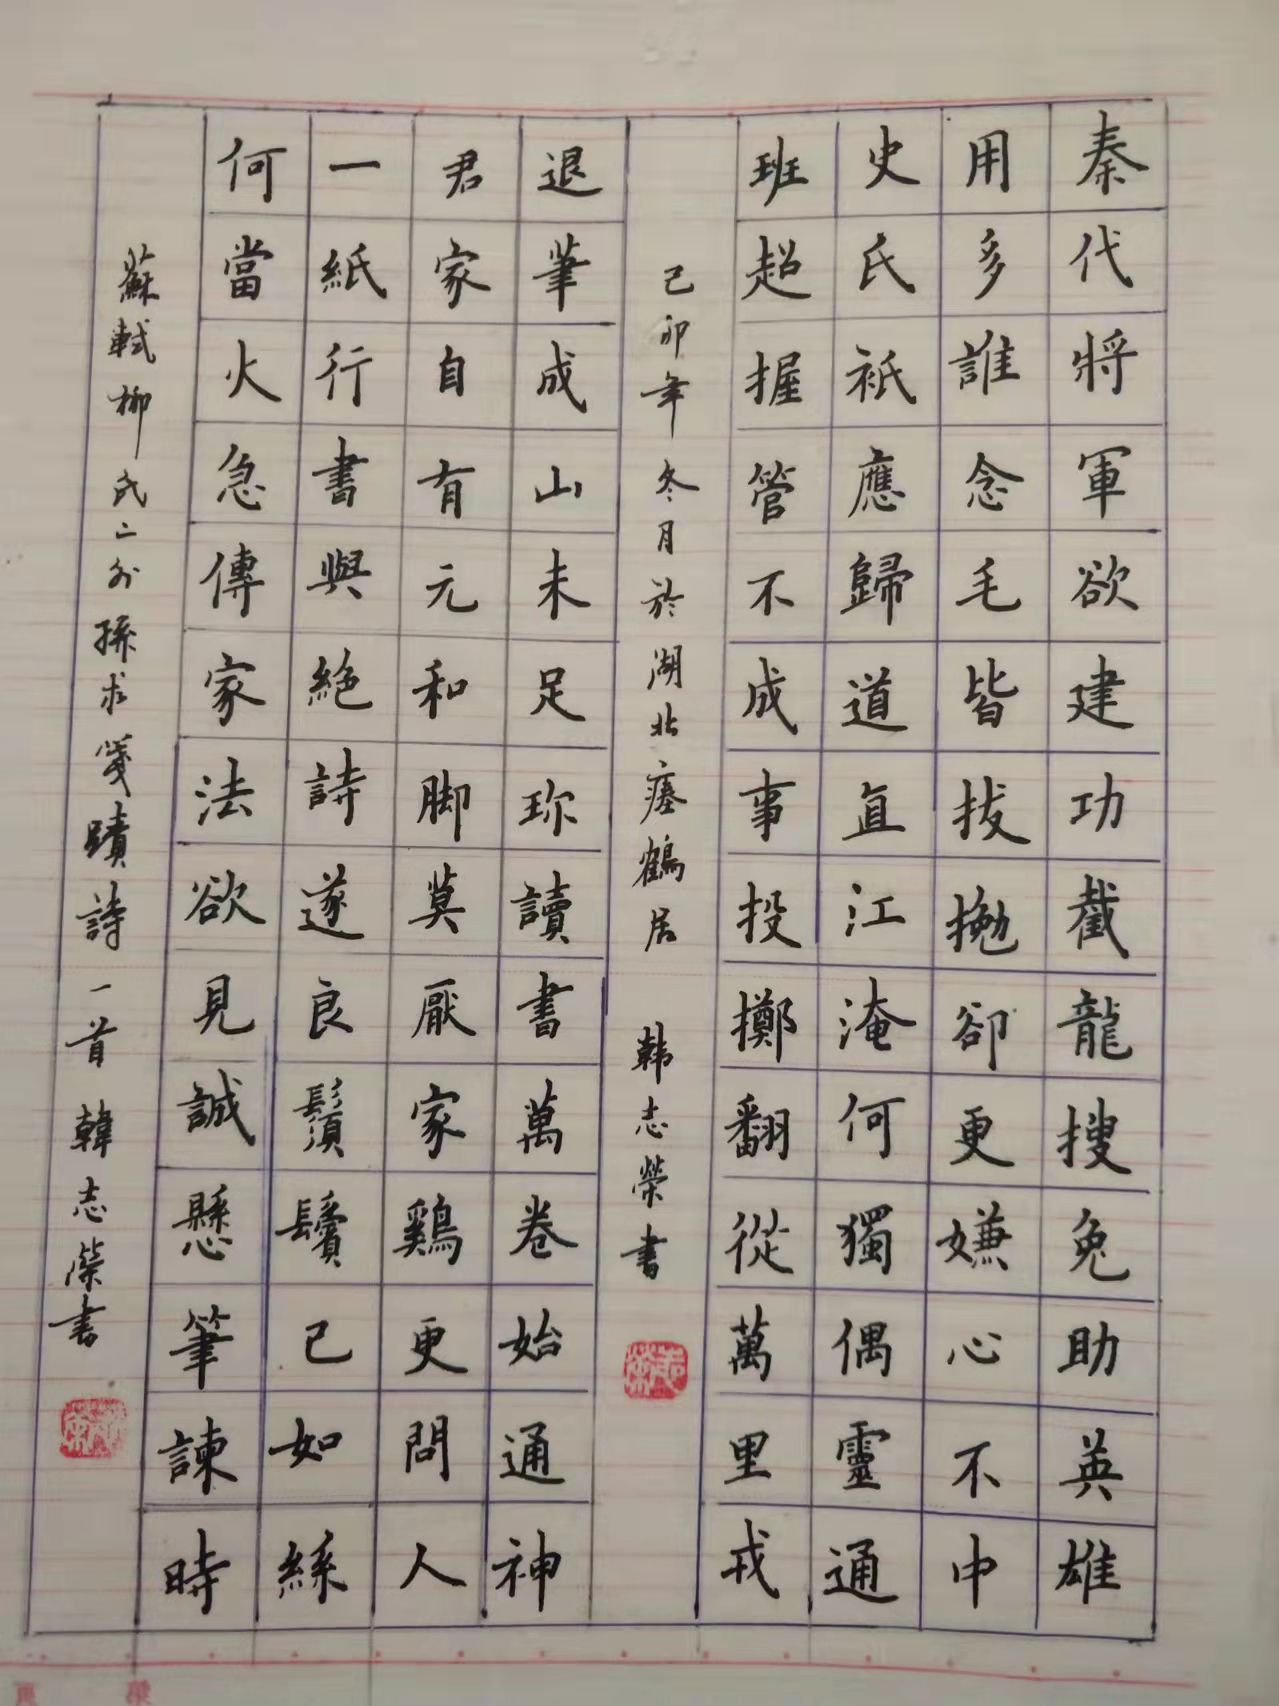 秦代將軍欲建功截龍搜兔助英雄
用多誰念毛皆拔抛卻更嫌心不中
史氏衹應歸道直江淹何獨偶靈通
班超握管不成事投擲翻從萬里戎
己卯年冬月於湖北瘞鶴居 韩志榮書
退筆成山未足珎讀書萬卷始通神
君家自有元和脚莫厭家鷄更問人
一紙行書與絶詩遂良鬚鬢已如絲
何當火急傳家法欲見誠懸筆諫時
蘇軾柳氏二外孫求筆蹟詩一首 韓志榮書